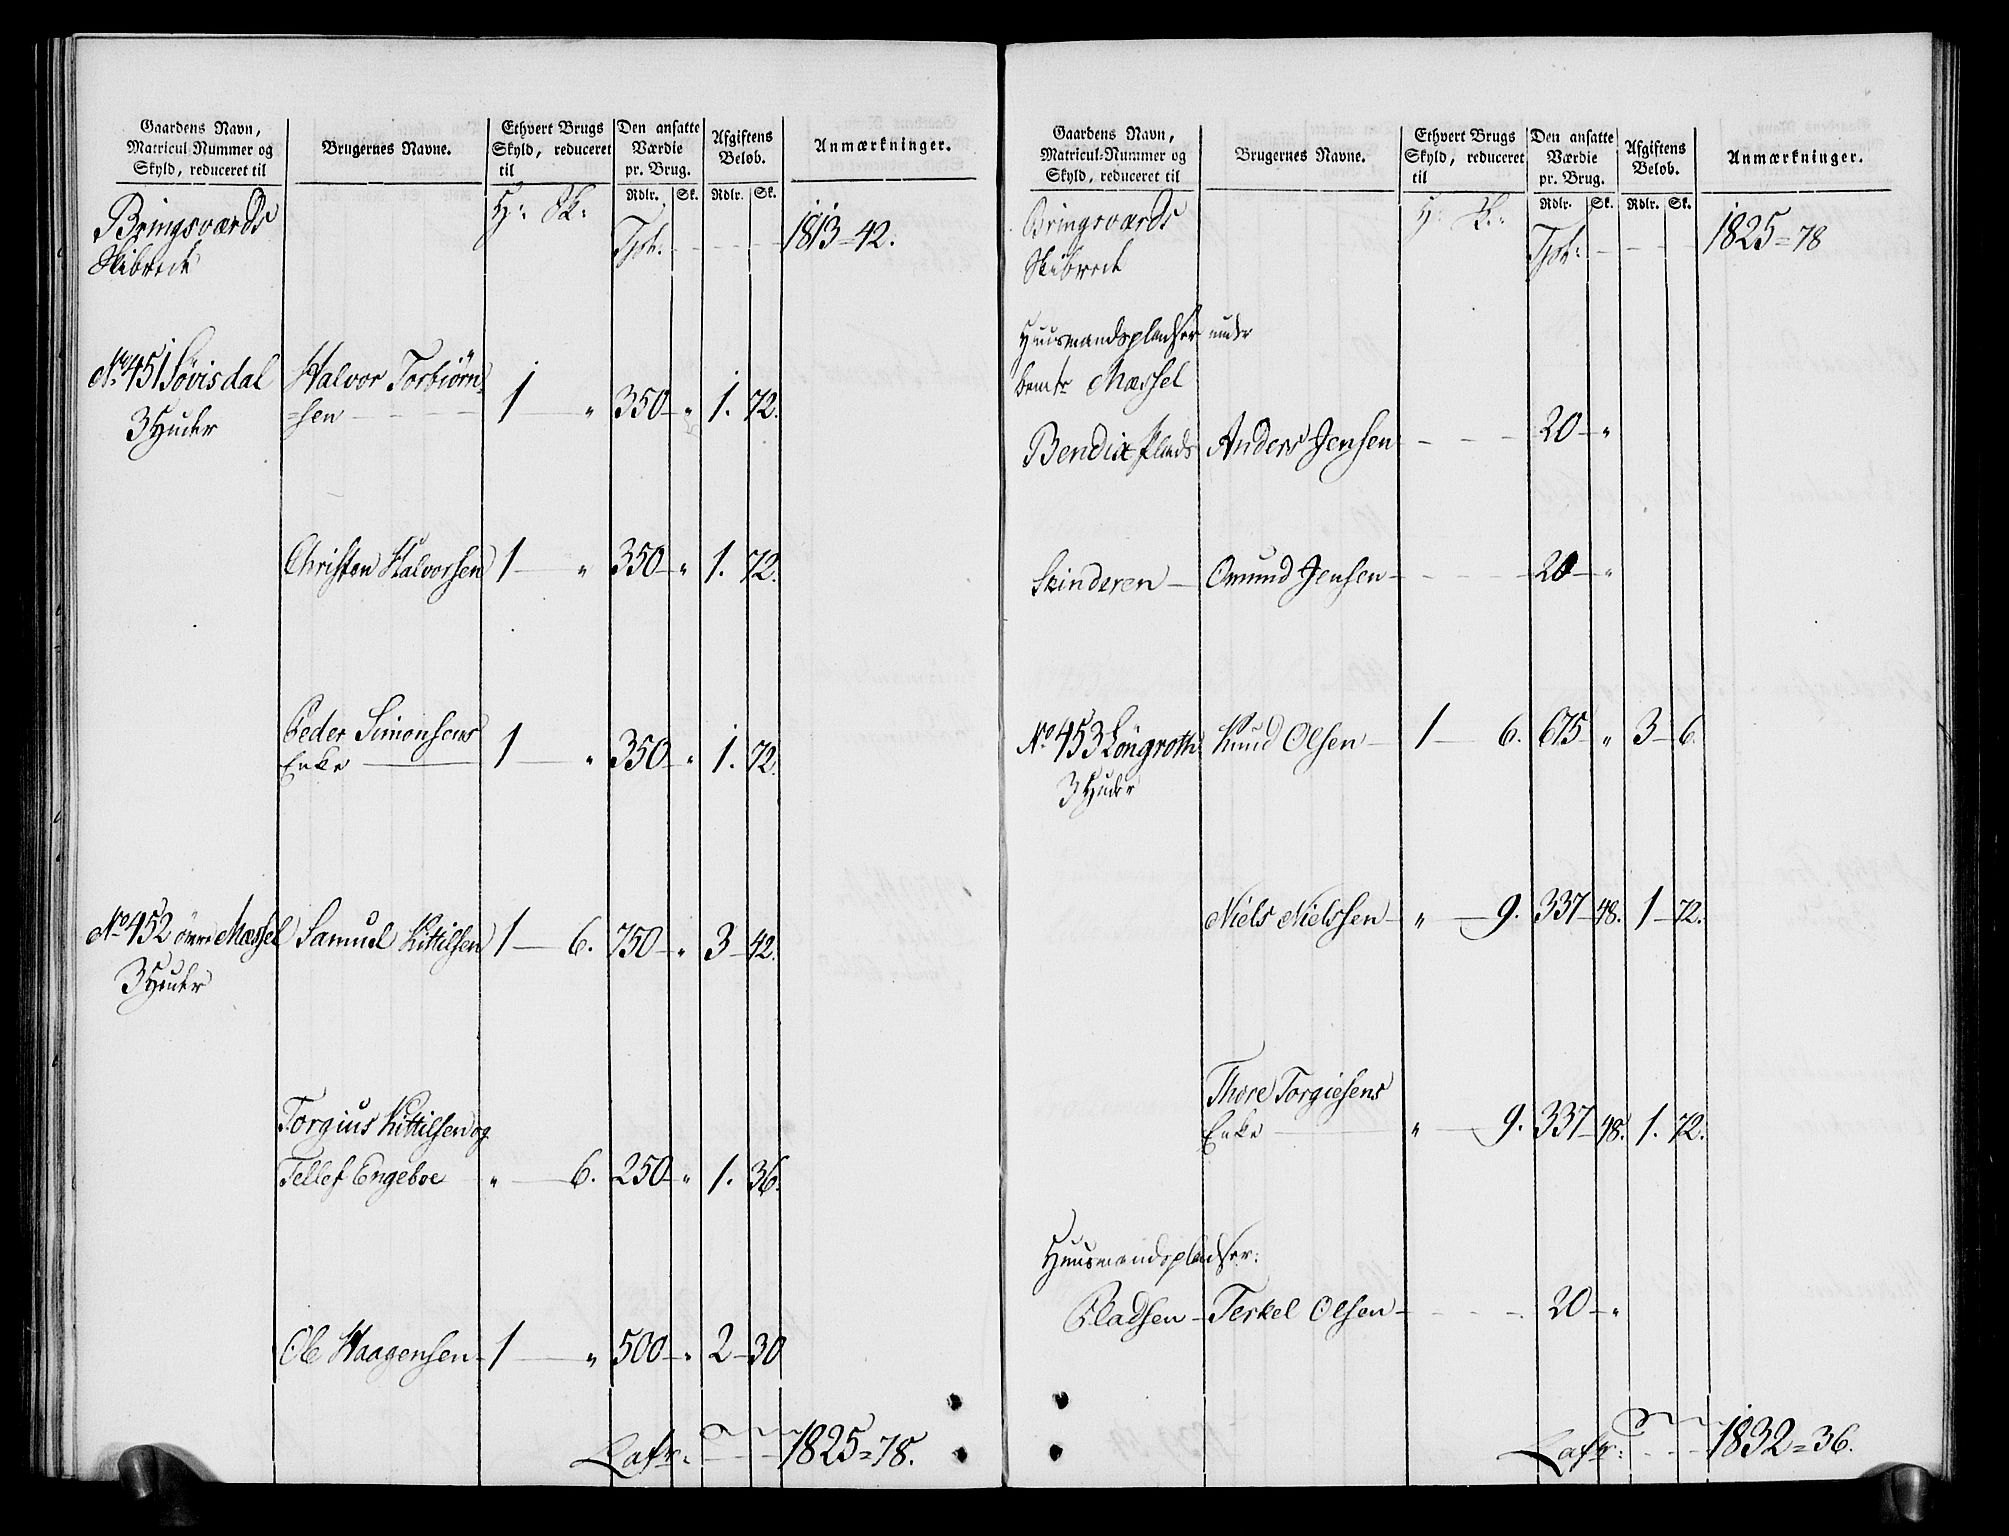 Gaardens Navn,
Matricul Nummer og
Skyld, reduceret til
Brugernes Navne.
Ethvert Brugs
Skyld, reduceret
til
Den ansatte
Værdie
pr. Brug.
Afgiftens
Beløb.
Anmærkninger.
Rdlr. Sk. Rdlr. Sk.
Bringsværds H: Sk:
Skibrede Tpt: 1813=42.
No 451 Søvisdal Halvor Torbiørn=
3 Huder =sen 1 — „ 350 — „ 1. 72.
Christen Halvorsen 1 — „ 350 — „ 1. 72.
Peder Simonsens
Enke 1 — „ 350 — „ 1. 72.
No 452 øvre Mæssel Samuel Kittilsen 1 — 6. 750 — „ 3 — 42.
3 Huder
Torgius Kittilsen og
Tellef Engeboe „ — 6. 250 — „ 1. 36.
Ole Haagensen 1 — „ 500 — „ 2 — 30
Lafr: 1825=78.
Gaardens Navn,
Matricul-Nummer og
Skyld, reduceret til
Brugernes Navne.
Ethvert Brugs
Skyld, reduceret
til
Den ansatte
Værdie
pr. Brug.
Afgiftens
Beløb.
Anmærkninger.
Rdlr. Sk. Rdlr. Sk.
Bringsværds H: Sk:
Skibrede Tpt: 1825=78
Huusmandspladser under
bemte Mæssel
Bendix Plads Anders Jensen 20 — „
Skinderen — Omund Jensen — 20 — „
No 453 Løngroth Knud Olsen — 1 — 6. 675 „ 3 — 6.
3 Huder
Niels Nielssen — „ — 9. 337 — 48. 1 — 72.
Thore Torgiesens
Enke „ — 9. 337 — 48. 1. 72.
Huusmandspladser:
Pladsen — Terkel Olsen — 20 — „
Lafr: 1832=36.